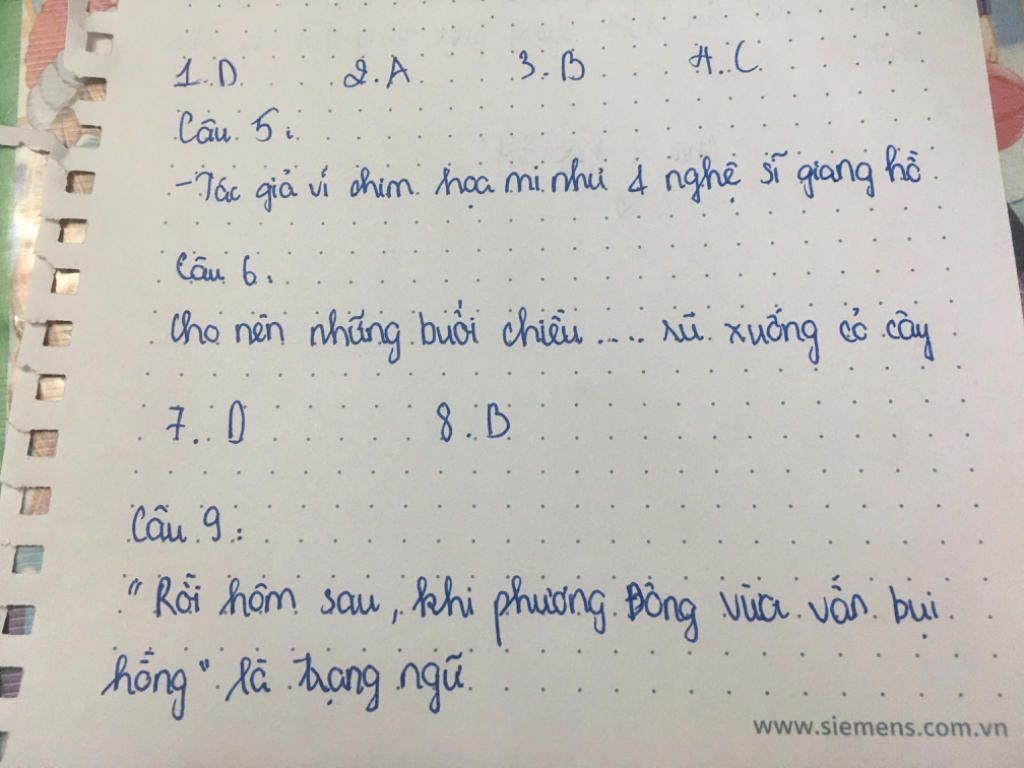 1. D 2. A 3. B 4. C
Câu 5:
- Tác giả ví chim họa mi như 1 nghệ sĩ giang hồ
Câu 6.
Cho nên những buổi chiều .... rũ xuống cỏ cây
7. D 8. B
Câu 9:
"Rồi hôm sau, khi phương Đông vừa vẩn bụi
hồng" là trạng ngữ
www.siemens.com.vn